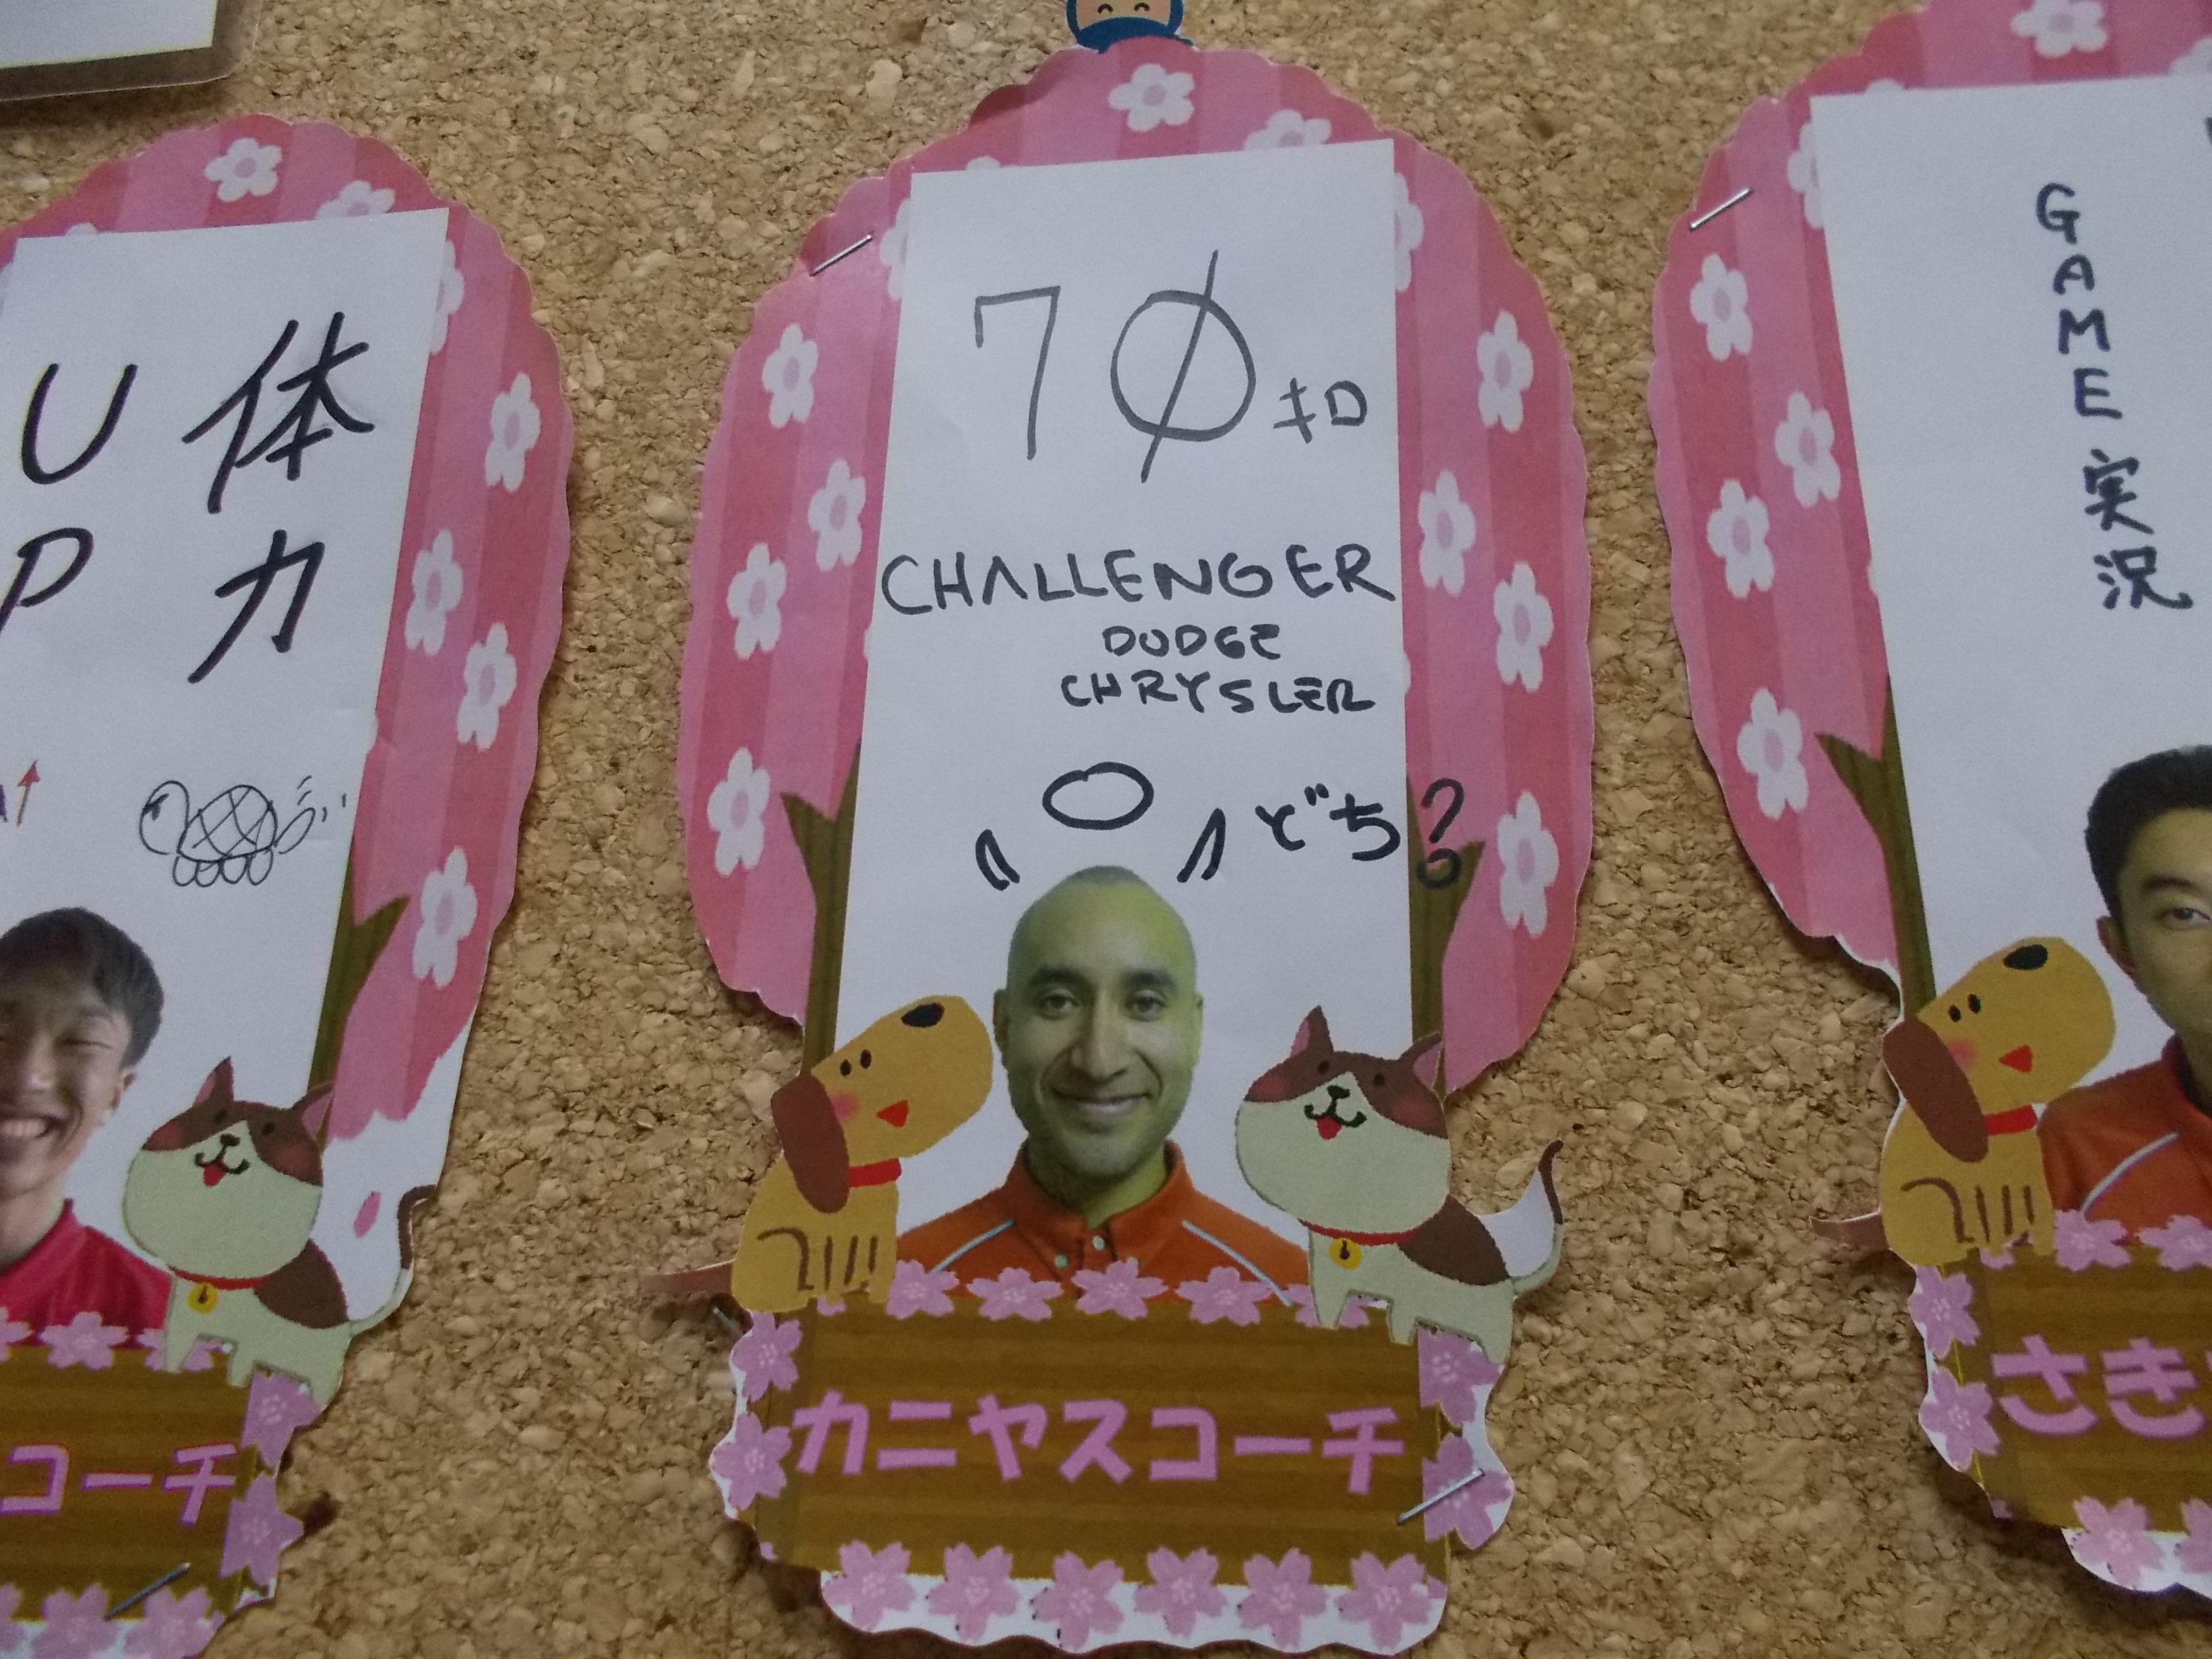 体力
UP
コーチ
70キロ
CHALLENGER
DODGE
CHRYSLER
どち?
カニヤスコーチ
GAME実況
さき